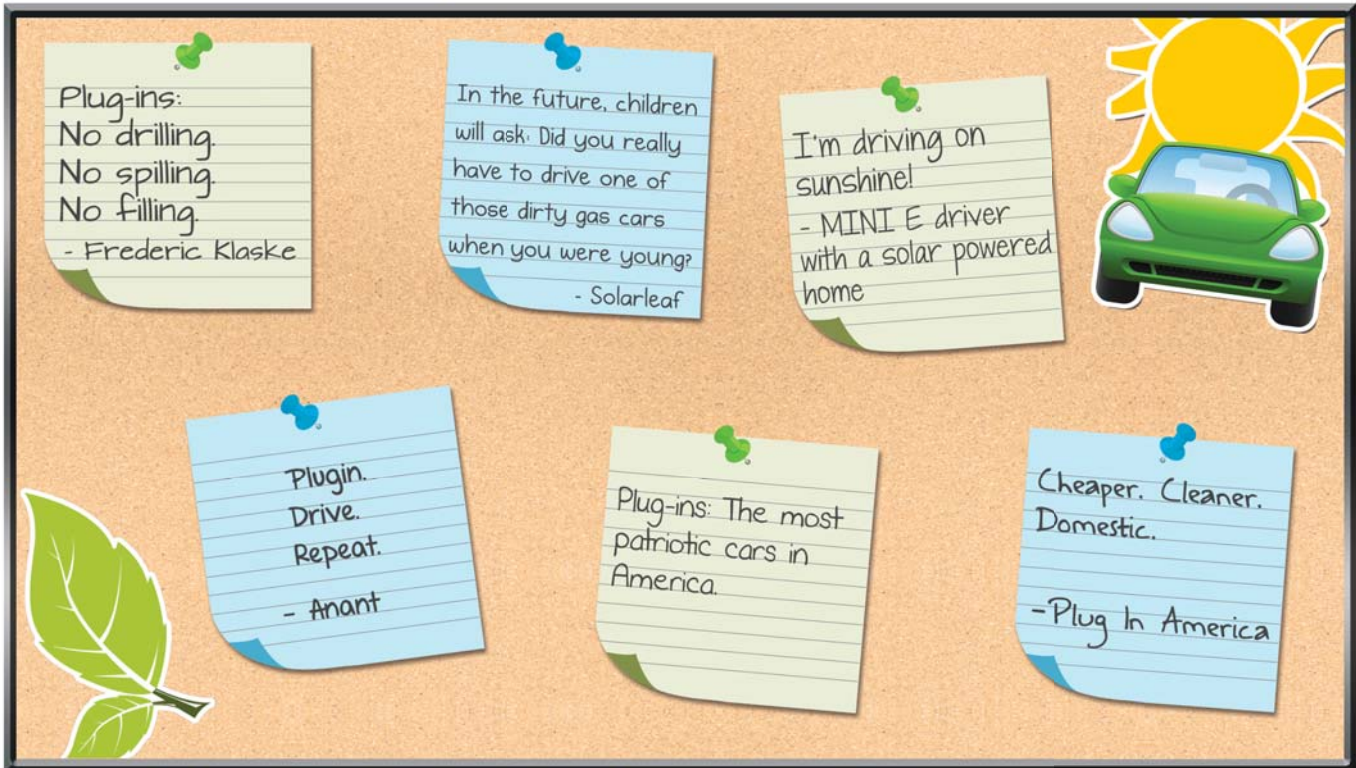 Plug-ins:
No drilling.
No spilling.
No filling.
- Frederic Klaske
In the future, children
will ask: Did you really
have to drive one of
those dirty gas cars
when you were young?
- Solarleaf
I'm driving on
sunshine!
- MINI E driver
with a solar powered
home
Plugin.
Drive.
Repeat.
- Anant
Plug-ins: The most
patriotic cars in
America.
Cheaper. Cleaner.
Domestic.
-Plug In America